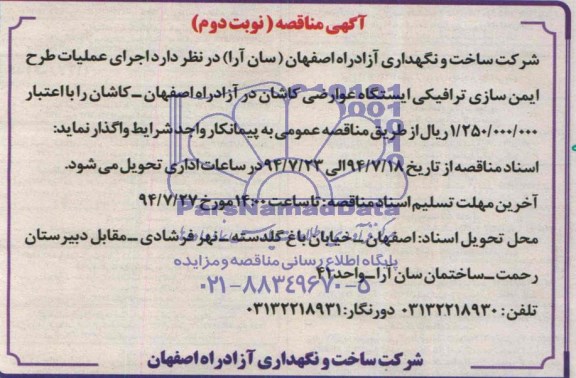 آگهی مناقصه (نوبت دوم)
شرکت ساخت و نگهداری آزادراه اصفهان (سان آرا) در نظر دارد اجرای عملیات طرح
ایمن سازی ترافیکی ایستگاه عوارضی کاشان در آزادراه اصفهان ـ کاشان را با اعتبار
۱/۲۵۰/۰۰۰/۰۰۰ ریال از طریق مناقصه عمومی به پیمانکار واجد شرایط واگذار نماید:
اسناد مناقصه از تاریخ ۹۴/۷/۱۸ الی ۹۴/۷/۲۳ در ساعات اداری تحویل می شود.
آخرین مهلت تسلیم اسناد مناقصه: تا ساعت ۱۴:۰۰ مورخ ۹۴/۷/۲۷
ParsNamadData
محل تحویل اسناد: اصفهان ـ خیابان باغ گلدسته ـ نهر فرشادی ـ مقابل دبیرستان
پایگاه اطلاع رسانی مناقصه و مزایده
رحمت ـ ساختمان سان آرا ـ واحد ۴۲
۰۲۱-۸۸۳۴۹۶۷۰-۵
تلفن: ۰۳۱۳۲۲۱۸۹۳۰ دورنگار: ۰۳۱۳۲۲۱۸۹۳۱
شرکت ساخت و نگهداری آزادراه اصفهان